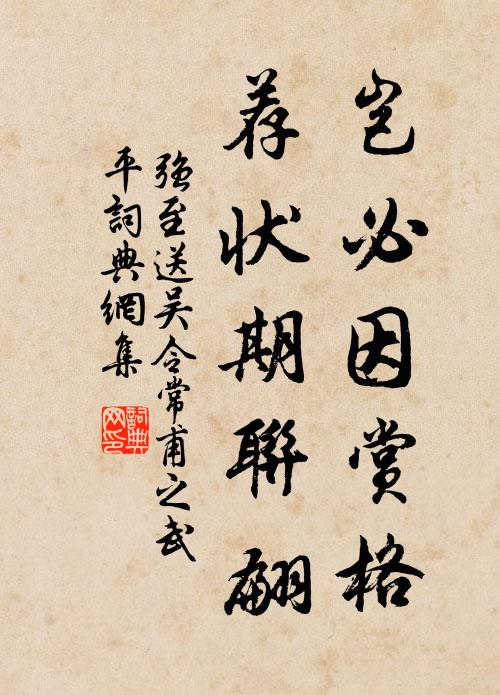 岂必因赏格
荐状期聯翩
強至送吴令常甫之武
平詞典網集
詞典
网印